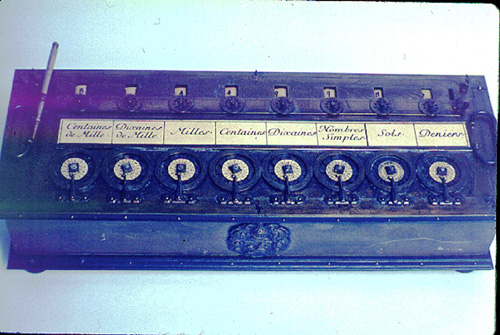 Centaines de Mille
Dixaines de Mille
Milles
Centaines
Dixaines
Nombres Simples
Sols
Deniers